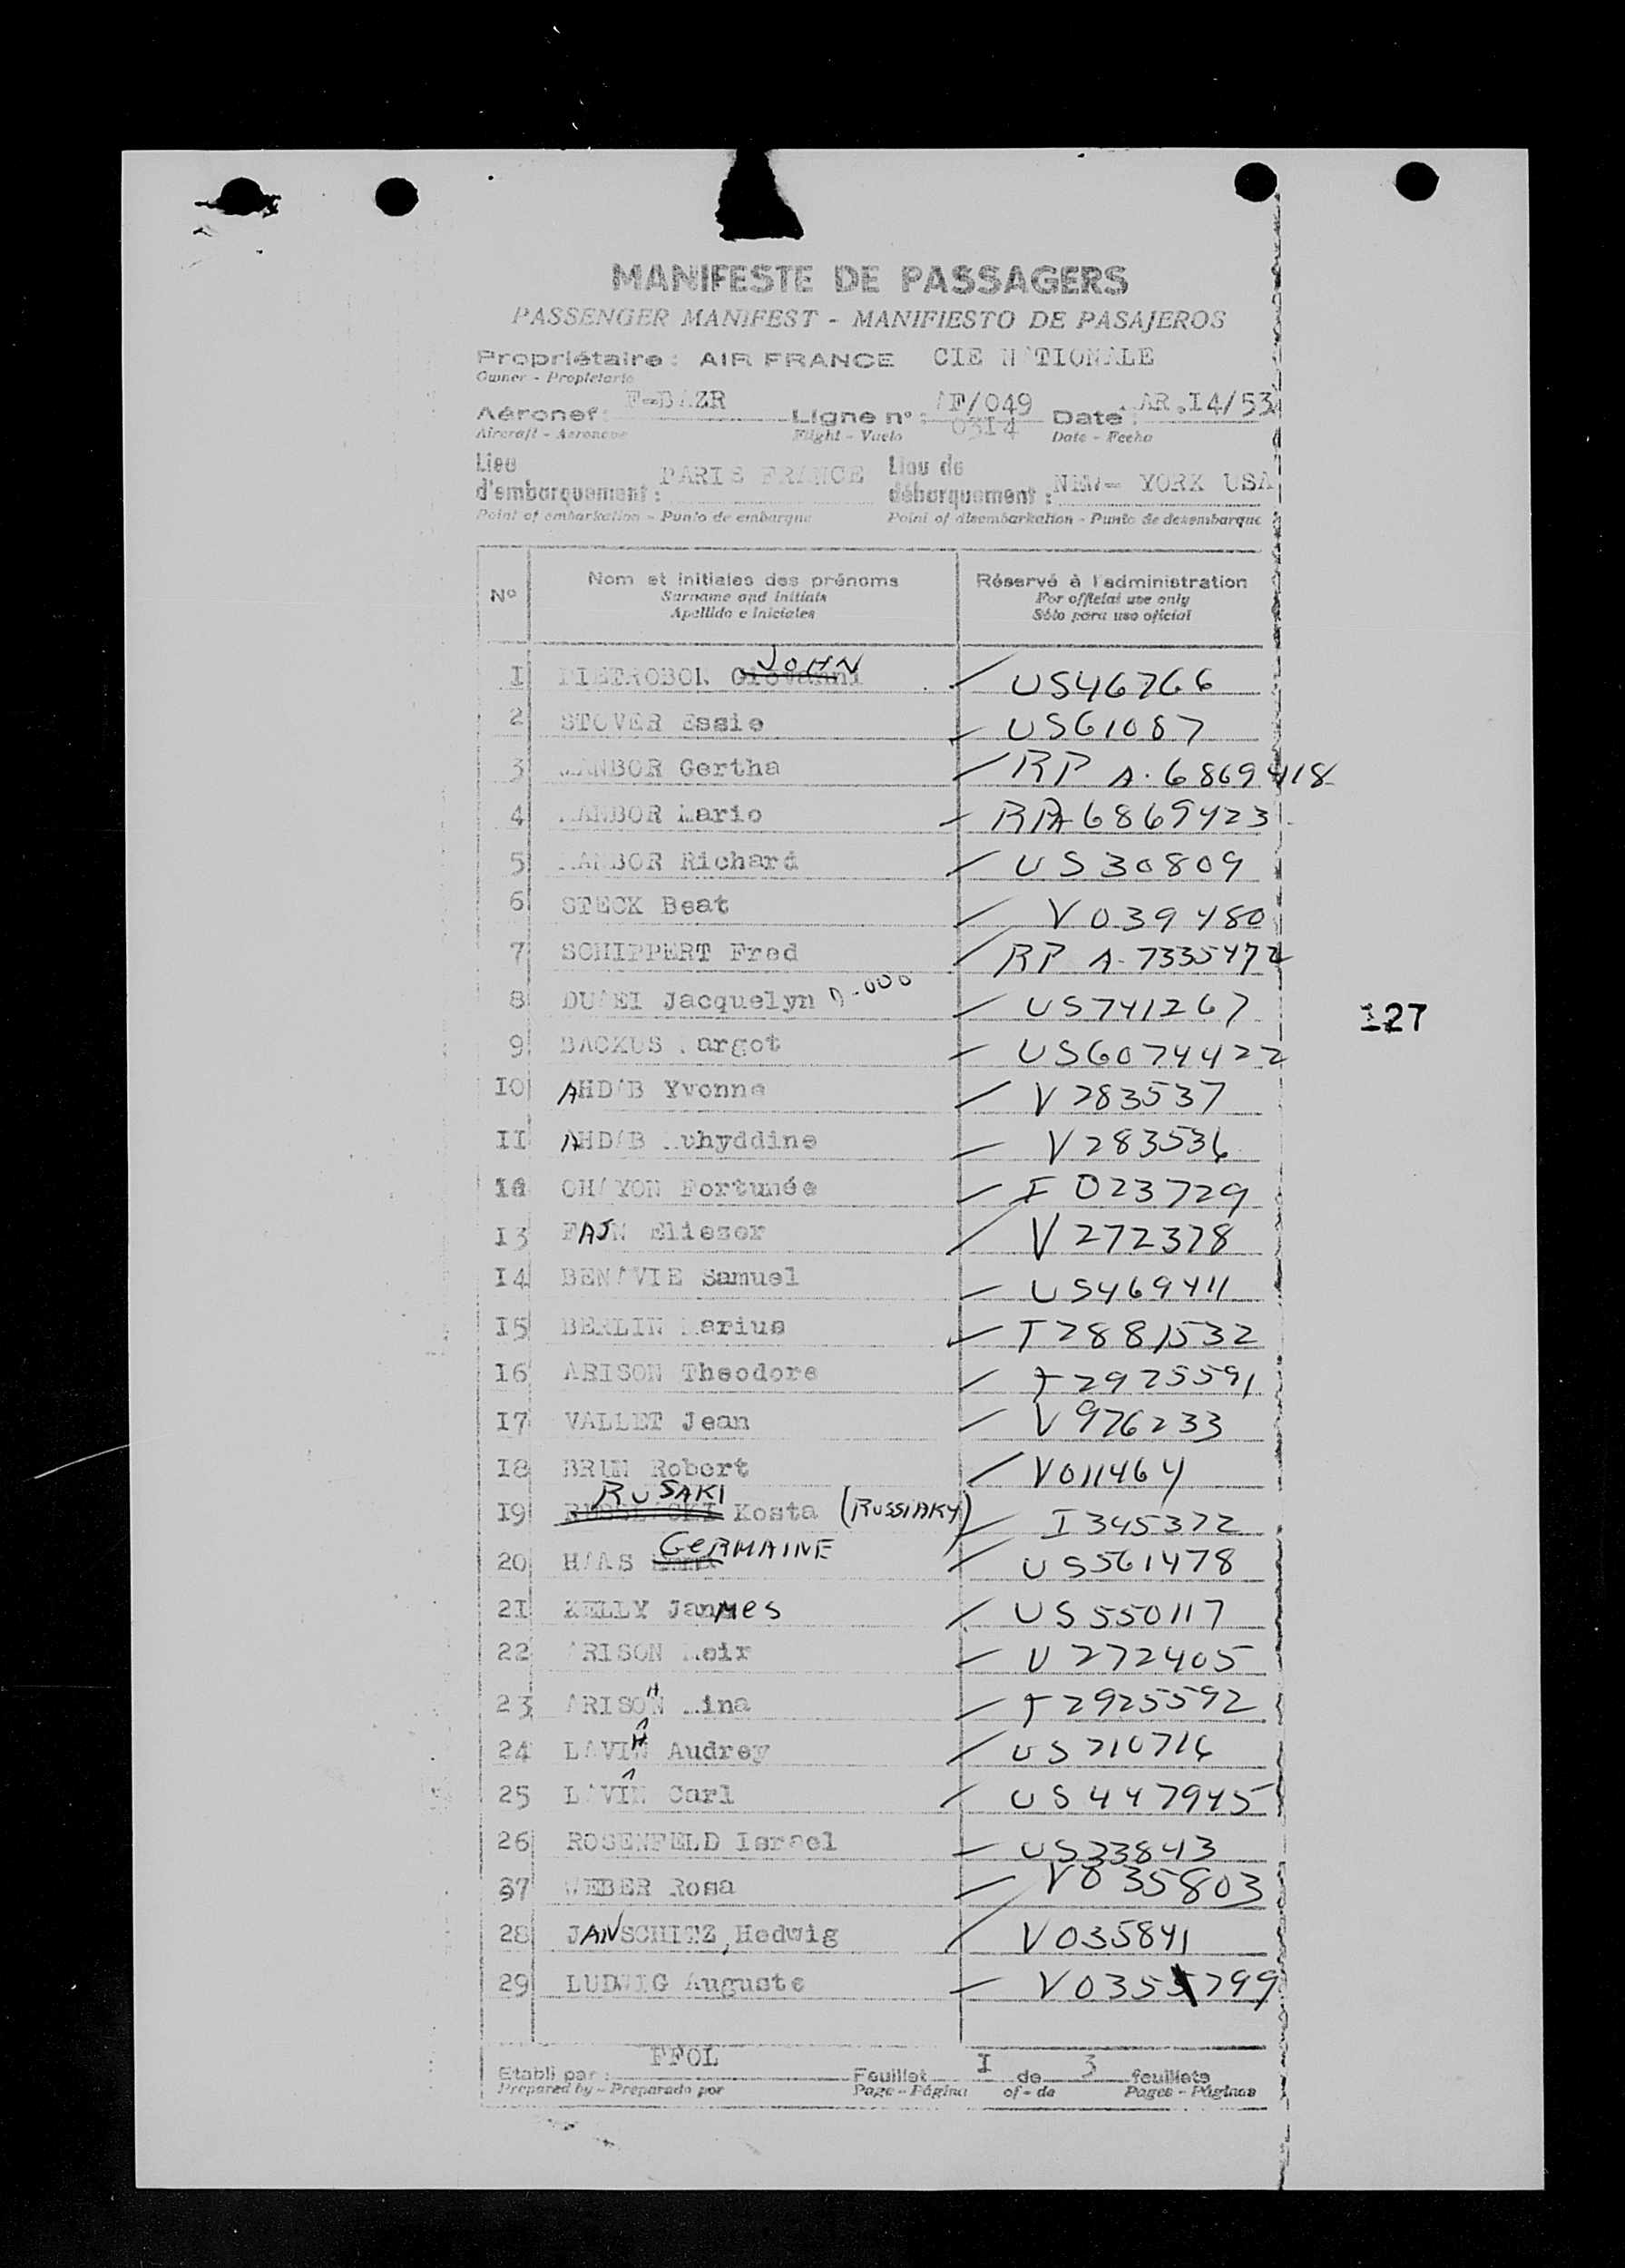 MANIFESTE DE PASSAGERS
PASSENGER MANIFEST - MANIFIESTO DE PASAJEROS
Propriétaire : AIR FRANCE CIE N TIONALE
Owner - Propietario
Aéronef : F-BAZR Ligne n° : AF/049 0314 Date : AR.I4/53
Aircraft - Aeronave Flight - Vuelo Date - Fecha
Lieu d'embarquement : PARIS FRANCE Lieu de débarquement : NEW- YORK USA
Point of embarkation - Punto de embarque Point of disembarkation - Punto de desembarque
N° Nom et initiales des prénoms Réservé à l'administration
Surname and initials For official use only
Apellido e iniciales Sólo para uso oficial
I PIETROBON Giovanni JOHN US46766
2 STOVER Essie US61087
3 ANBOR Gertha RP A. 6869418
4 ANBOR Mario RPA 6869423
5 ANBOR Richard US30809
6 STECK Beat V039480
7 SCHIPPERT Fred RP A-7335472
8 Jacquelyn US741267
9 BACKUS argot US6074422
I0 AHDAB Yvonne V283537
II AHDAB uhyddine V283536
OHAYON Fortunée I 023729
I3 FAJN Eliezer V272378
I4 BENAVIE Samuel US469411
I5 BERLIN Marius T2881532
I6 ARISON Theodore T2925591
I7 VALLET Jean V976233
I8 BRUN Robert V011464
I9 RUSAKI Kosta (RUSSIAKY) I345372
20 HAAS GERMAINE US561478
2I KELLY James US550117
22 ARISON Meir V272405
23 ARISOHN ina T2925592
24 LAVIHN Audrey US710716
25 LAVIN Carl US447945
26 ROSENFELD Israel US33843
37 WEBER Rosa V035803
28 JANSCHITZ, Hedwig V035841
29 LUDWIG Auguste V035799
127
Etabli par : FFOL Feuillet I de 3 feuillets
Prepared by - Preparado por Page - Página of - de Pages - Páginas